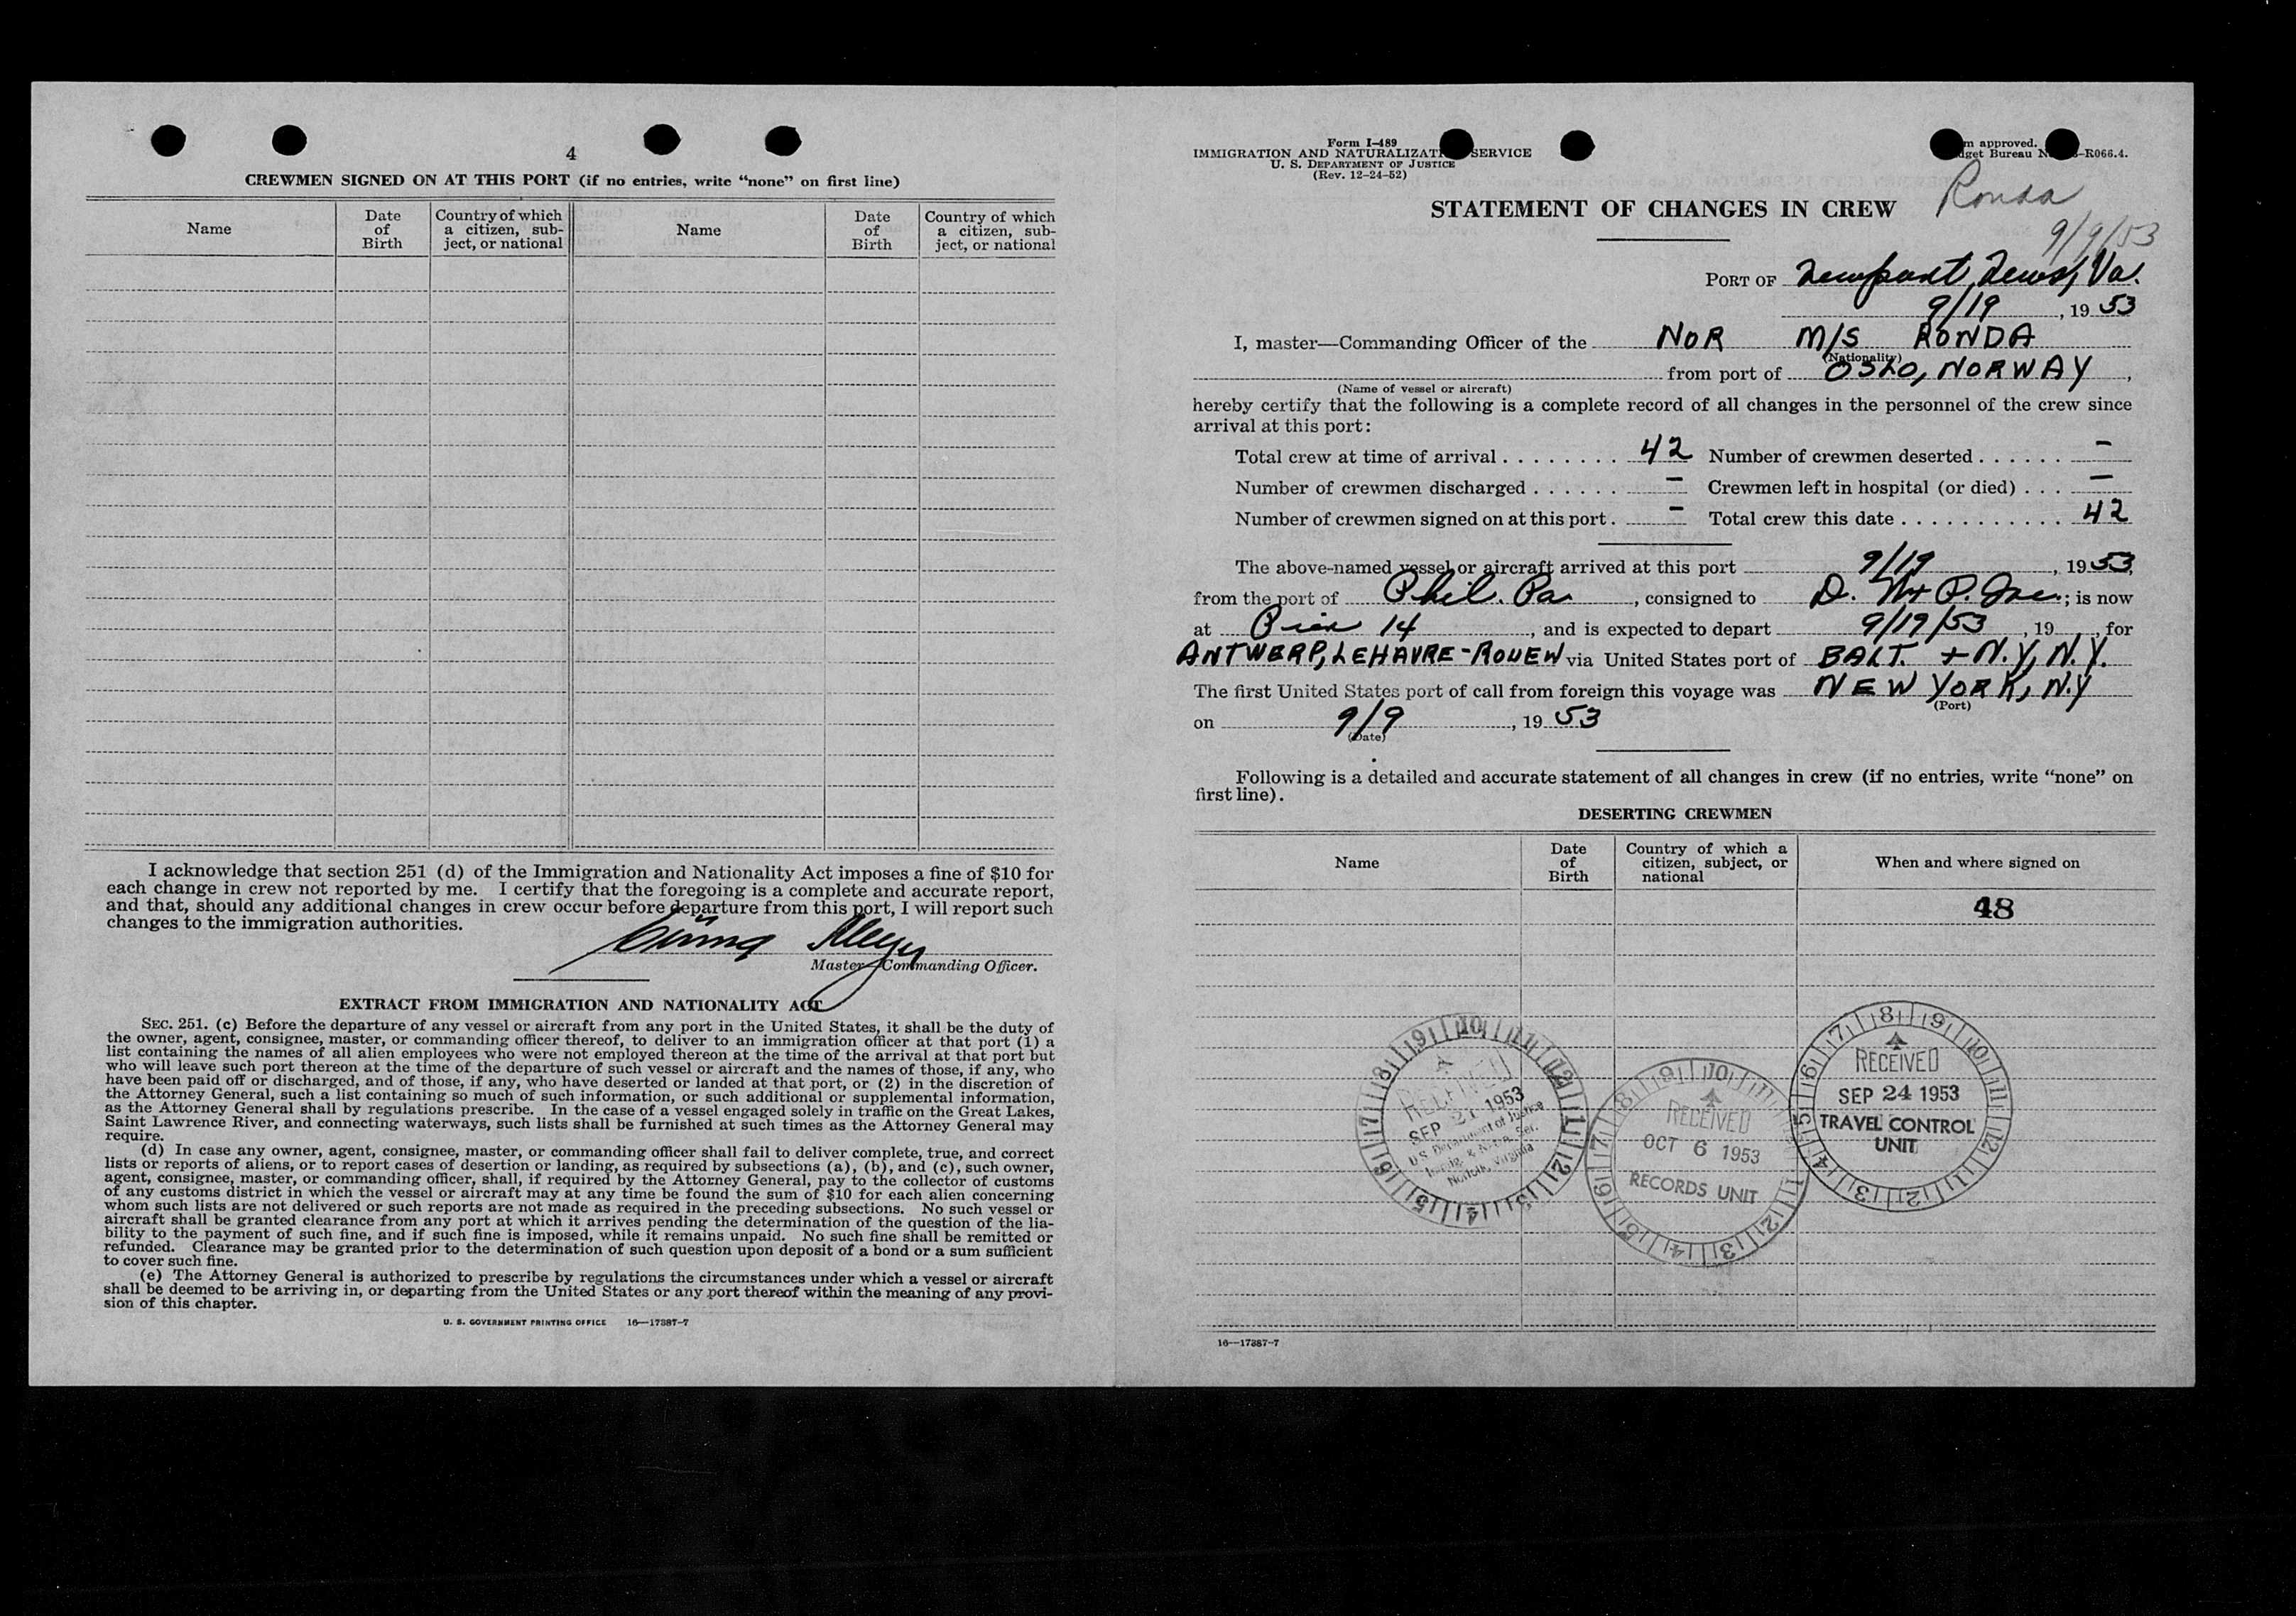 4
CREWMEN SIGNED ON AT THIS PORT (if no entries, write “none” on first line)
Name
Date of Birth
Country of which a citizen, subject, or national
Name
Date of Birth
Country of which a citizen, subject, or national
I acknowledge that section 251 (d) of the Immigration and Nationality Act imposes a fine of $10 for
each change in crew not reported by me. I certify that the foregoing is a complete and accurate report,
and that, should any additional changes in crew occur before departure from this port, I will report such
changes to the immigration authorities.
Master—Commanding Officer.
EXTRACT FROM IMMIGRATION AND NATIONALITY ACT
SEC. 251. (c) Before the departure of any vessel or aircraft from any port in the United States, it shall be the duty of
the owner, agent, consignee, master, or commanding officer thereof, to deliver to an immigration officer at that port (1) a
list containing the names of all alien employees who were not employed thereon at the time of the arrival at that port but
who will leave such port thereon at the time of the departure of such vessel or aircraft and the names of those, if any, who
have been paid off or discharged, and of those, if any, who have deserted or landed at that port, or (2) in the discretion of
the Attorney General, such a list containing so much of such information, or such additional or supplemental information,
as the Attorney General shall by regulations prescribe. In the case of a vessel engaged solely in traffic on the Great Lakes,
Saint Lawrence River, and connecting waterways, such lists shall be furnished at such times as the Attorney General may
require.
(d) In case any owner, agent, consignee, master, or commanding officer shall fail to deliver complete, true, and correct
lists or reports of aliens, or to report cases of desertion or landing, as required by subsections (a), (b), and (c), such owner,
agent, consignee, master, or commanding officer, shall, if required by the Attorney General, pay to the collector of customs
of any customs district in which the vessel or aircraft may at any time be found the sum of $10 for each alien concerning
whom such lists are not delivered or such reports are not made as required in the preceding subsections. No such vessel or
aircraft shall be granted clearance from any port at which it arrives pending the determination of the question of the lia-
bility to the payment of such fine, and if such fine is imposed, while it remains unpaid. No such fine shall be remitted or
refunded. Clearance may be granted prior to the determination of such question upon deposit of a bond or a sum sufficient
to cover such fine.
(e) The Attorney General is authorized to prescribe by regulations the circumstances under which a vessel or aircraft
shall be deemed to be arriving in, or departing from the United States or any port thereof within the meaning of any provi-
sion of this chapter.
U. S. GOVERNMENT PRINTING OFFICE 16—17387-7
Form I-489
IMMIGRATION AND NATURALIZATI SERVICE
U. S. DEPARTMENT OF JUSTICE
(Rev. 12-24-52)
m approved.
dget Bureau N -R066.4.
Ronda
9/9/53
STATEMENT OF CHANGES IN CREW
PORT OF Newport News, Va.
9/19, 19 53
I, master—Commanding Officer of the NOR M/S RONDA
(Nationality)
from port of OSLO, NORWAY,
(Name of vessel or aircraft)
hereby certify that the following is a complete record of all changes in the personnel of the crew since
arrival at this port:
Total crew at time of arrival . . . . . . . . 42 Number of crewmen deserted . . . . . . –
Number of crewmen discharged . . . . . . – Crewmen left in hospital (or died) . . . –
Number of crewmen signed on at this port . – Total crew this date . . . . . . . . . . . 42
The above-named vessel or aircraft arrived at this port 9/19, 19 53,
from the port of Phil. Pa, consigned to D. Inc.; is now
at Pier 14, and is expected to depart 9/19/53, 19 , for
ANTWERP, LEHAVRE-ROUEN via United States port of BALT. + N.Y, N.Y.
The first United States port of call from foreign this voyage was NEW YORK, N.Y
(Port)
on 9/9, 19 53
(Date)
Following is a detailed and accurate statement of all changes in crew (if no entries, write “none” on
first line).
DESERTING CREWMEN
Name
Date of Birth
Country of which a citizen, subject, or national
When and where signed on
48
RECEIVED
SEP 21 1953
U.S. Department of Justice
Immig. & Natzn. Ser.
Norfolk, Virginia
RECEIVED
OCT 6 1953
RECORDS UNIT
RECEIVED
SEP 24 1953
TRAVEL CONTROL
UNIT
16—17387-7